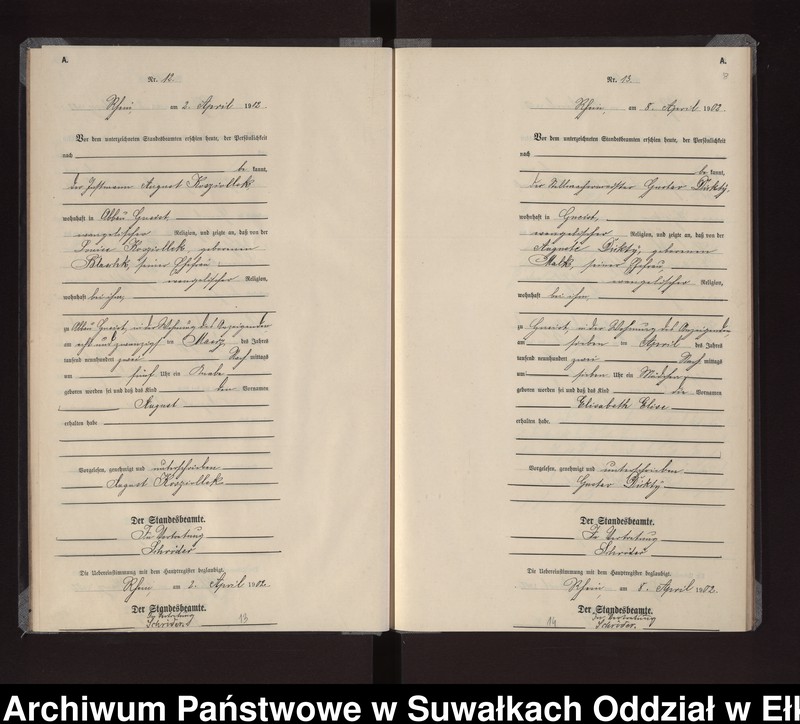 A.
Nr. 12.
Rhein, am 2. April 1902.
Vor dem unterzeichneten Standesbeamten erschien heute, der Persönlichkeit
nach
be kannt,
der Instmann August Kozziollek
wohnhaft in Abbau Gneist
evangelischer Religion, und zeigte an, daß von der
Louise Kozziollek geborenen
seiner Ehefrau
evangelischer Religion,
wohnhaft bei ihm,
zu Abbau Gneist, in der Wohnung des Anzeigenden
am acht und zwanzigsten März des Jahres
tausend neunhundert zwei Nach mittags
um fünf Uhr ein Knabe
geboren worden sei und daß das Kind den Vornamen
August
erhalten habe
Vorgelesen, genehmigt und unterschrieben
August Kozziollek
Der Standesbeamte.
In Vertretung
Schröder
Die Uebereinstimmung mit dem Hauptregister beglaubigt.
Rhein am 2. April 1902.
Der Standesbeamte.
In Vertretung
Schröder.
13
A.
Nr. 13.
Rhein, am 8. April 1902.
Vor dem unterzeichneten Standesbeamten erschien heute, der Persönlichkeit
nach
be kannt,
der Stellmachermeister Gustav Dickty,
wohnhaft in Gneist,
evangelischer Religion, und zeigte an, daß von der
Auguste Dickty, geborenen
seiner Ehefrau,
evangelischer Religion,
wohnhaft bei ihm,
zu Gneist, in der Wohnung des Anzeigenden,
am sieben ten April des Jahres
tausend neunhundert zwei Nach mittags
um sieben Uhr ein Mädchen
geboren worden sei und daß das Kind die Vornamen
Elisabeth Elise
erhalten habe.
Vorgelesen, genehmigt und unterschrieben
Gustav Dickty
Der Standesbeamte.
In Vertretung
Schröder
Die Uebereinstimmung mit dem Hauptregister beglaubigt.
Rhein, am 8. April 1902.
Der Standesbeamte.
In Vertretung
Schröder.
14
Archiwum Państwowe w Suwałkach Oddział w Eł